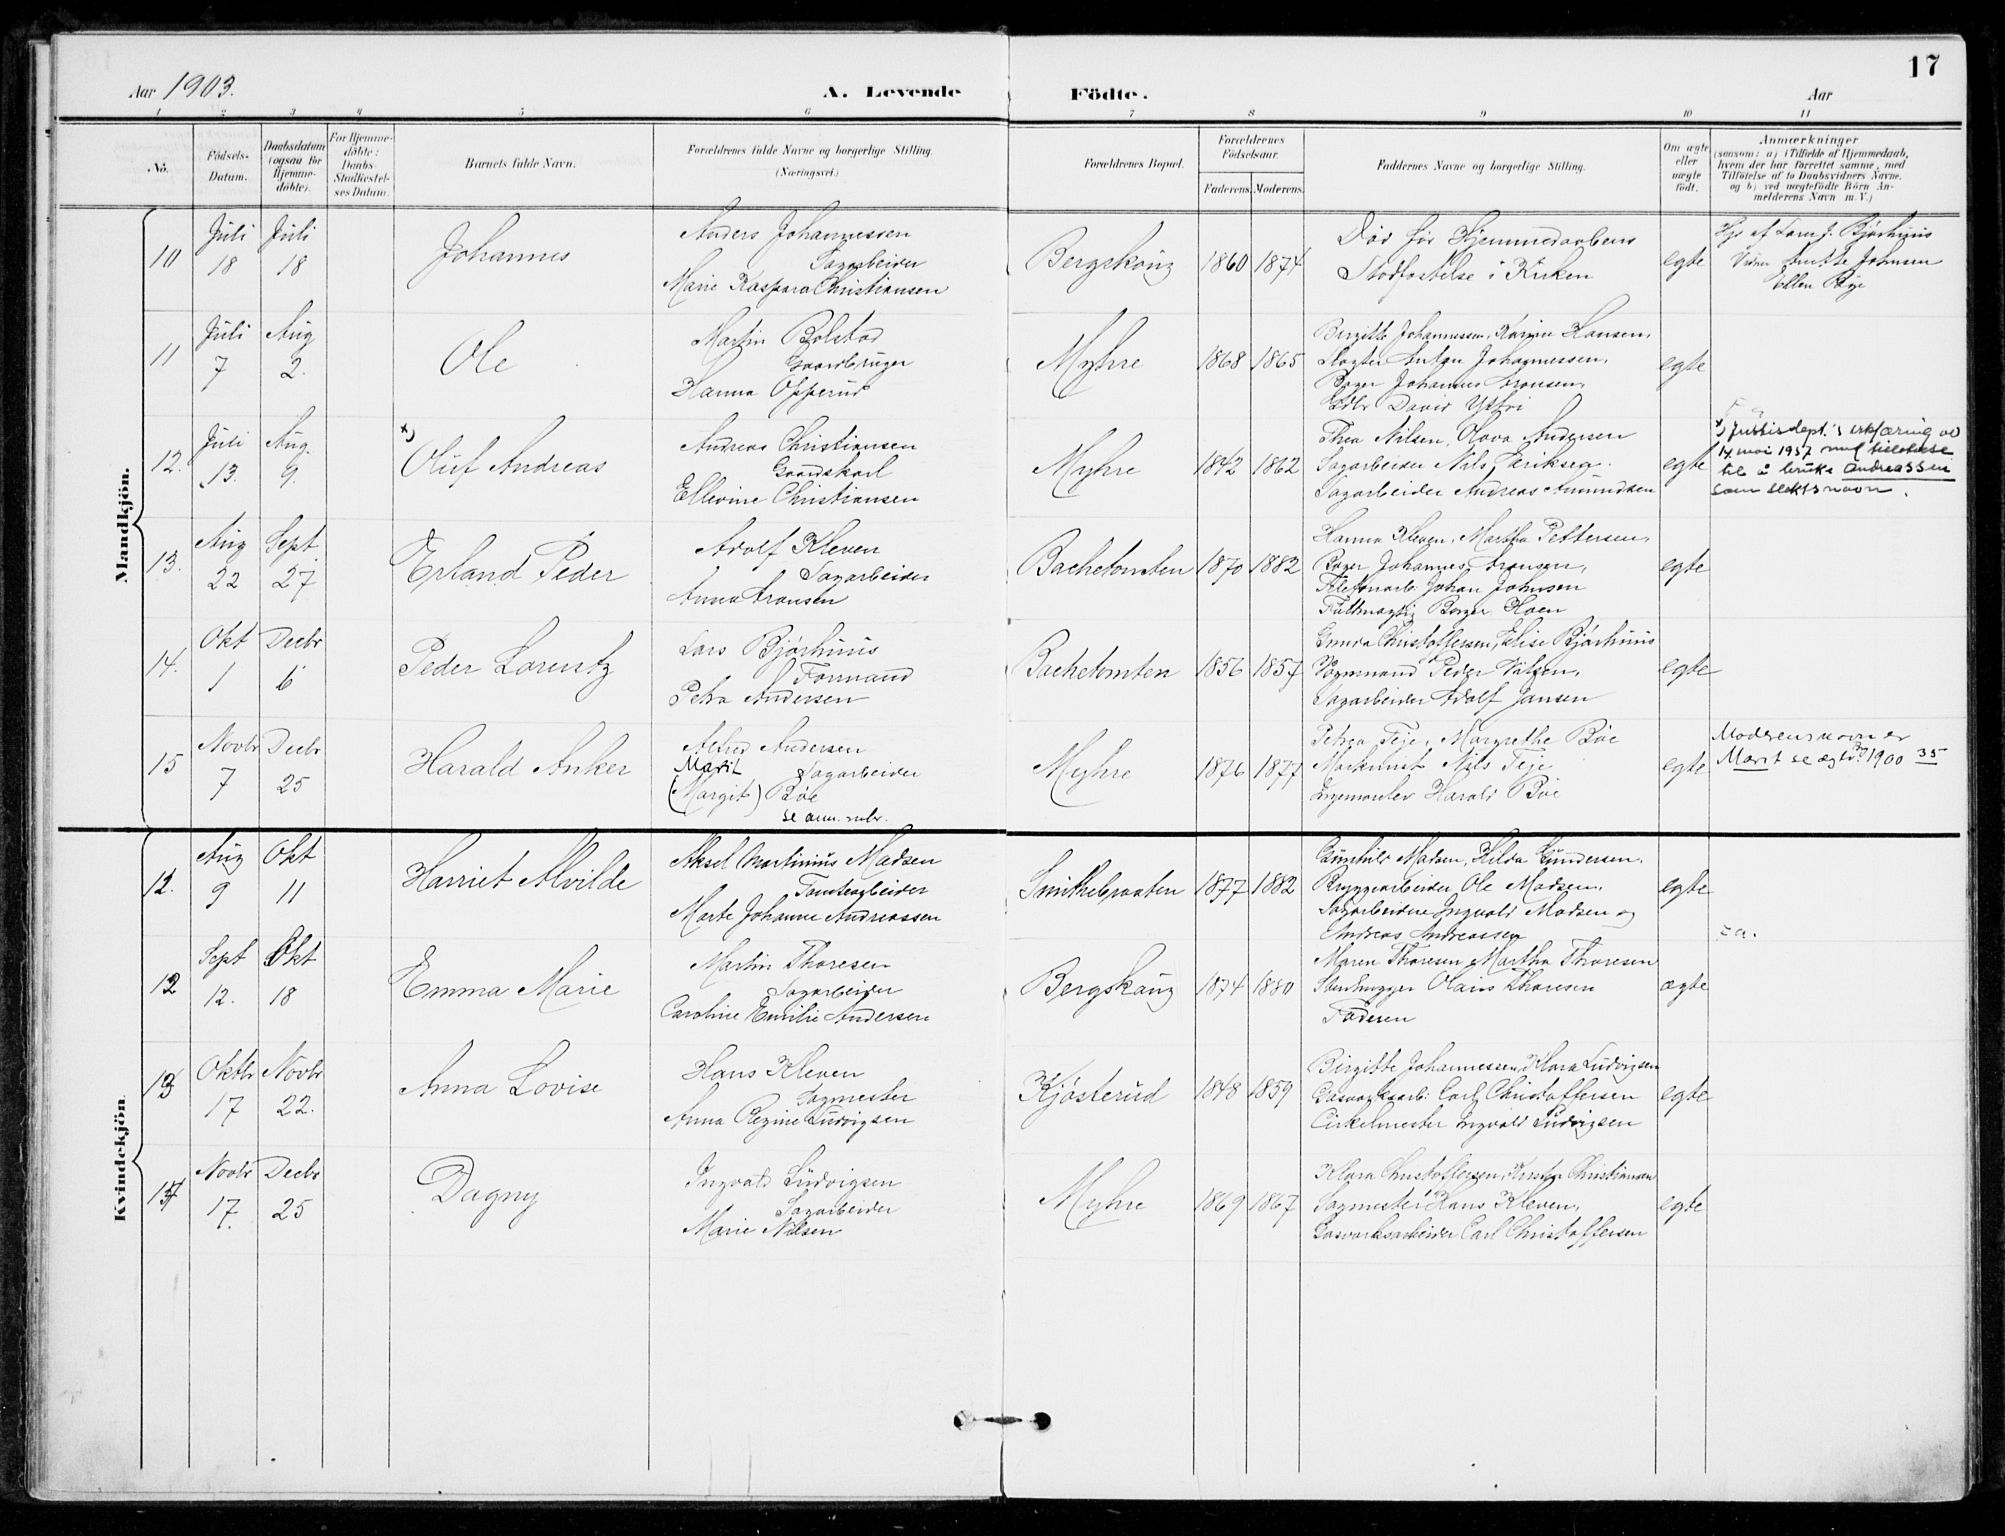 17
Aar 1903.
A. Levende
Födte.
Aar
1 2 3 4 5 6 7 8 9 10 11
No.
Födsels-Datum.
Daabsdatum (ogsaa for Hjemme-döbte).
For Hjemme-döbte: Daabs-Stadfæstel-ses Datum.
Barnets fulde Navn.
Forældrenes fulde Navne og borgerlige Stilling. (Næringsvei.)
Forældrenes Bopæl.
Forældrenes Födselsaar.
Faderens. Moderens.
Faddernes Navne og borgerlige Stilling.
Om ægte eller uægte födt.
Anmærkninger
(saasom: a) i Tilfælde af Hjemmedaab, hvem der har forrettet samme, med Tilföielse af to Daabsvidners Navne, og b) ved uægtefödte Börn An-melderens Navn m.V.)
Mandkjön.
10 Juli 18 Juli 18 Johannes
Anders Johannessen
Sagarbeider
Marie Kaspara Christiansen
Bergskoug 1860 1874
Död før Hjemmedaabens
Stadfæstelse i Kirken
egte
Hjd af Lars J. Bjørhuus
Ellen Böje
11 Juli 7 Aug 2. Ole
Martin Bolstad
Gaardbruger
Hanna Opperud
Myhre 1868 1865
Birgitte Johannessen, Karine Hansen,
Slagter Anton Johannessen,
Bager Johannes Aronsen,
Gdbr David
egte
12. Juli 13. Aug. 9. x) Oluf Andreas
Andreas Christiansen
Gaardskarl
Ellevine Christiansen
Myhre 1842 1862
Thea Nilsen, Olava Andersen
Sagarbeider Nils Eriksen.
Sagarbeider Andreas Amundsen
egte
x) Justisdept.'s erklæring av
14 mai 1957 med tillatelse
til å bruke Andreassen
som slektsnavn.
13. Aug 22 Sept 27 Erland Peder
Adolf Kleven
Sagarbeider
Anna Aronsen
Bachetomten 1870 1882
Hanna Kleven, Martha Pettersen,
Bager Johannes Aronsen,
Telefonarb. Johan Johnsen
Fuldmægtig Borger Hoen
egte
14. Okt 1 Decbr 6 Peder Lorentz
Lars Bjørhuus
Formand
Petra Andersen
Bachetomten 1856 1857
Gunda Christoffersen, Elise Bjørhuus
Vognmand Peder
Sagarbeider Adolf Jansen
egte
15 Novbr 7 Decbr 25 Harald Anker
Alfred Andersen
Marit Sagarbeider
(Margit) Bøe
se anm. rubr.
Myhre 1876 1877
Petrea Teje, Margrethe Böe
Maskinist Nils Teje
Harald Böe
egte
Moderens navn er
Marit se ægtv. 1900 35
Kvindekjön.
12. Aug 9 Okt 11 Harriet Alvilde
Aksel Martinius Madsen
Tomtearbeider
Marte Johanne Andreassen
Smithebraaten 1877 1882
Gunhild Madsen, Hilda Gundersen,
Bryggearbeider Ole Madsen,
Sagarbeidere Ingvald Madsen og
Andreas Andreassen
egte
12 Sept 12. Okt 18 Emma Marie
Martin Thoresen
Sagarbeider
Caroline Emilie Andersen
Bergskaug 1874 1880
Maren Thoresen, Martha Thoresen
Stenhugger Olaus Thoresen
Faderen
ægte
13 Oktbr 17 Novbr 22. Anna Lovise
Hans Kleven
Sagmester
Anna Regine Ludvigsen
Kjøsterud 1848 1859
Birgitte Johannessen, Klara Ludvigsen
Gasværksarb: Carl Christoffersen
Cirkelmester Ingvald Ludvigsen
egte
Novbr 17. Decbr 25 Dagny
Ingvald Ludvigsen
Sagarbeider
Marie Nilsen
Myhre 1869 1867
Klara Christoffersen, Kirstin Christiansen
Sagmester Hans Kleven,
Gasværksarbeider Carl Christoffersen
egte